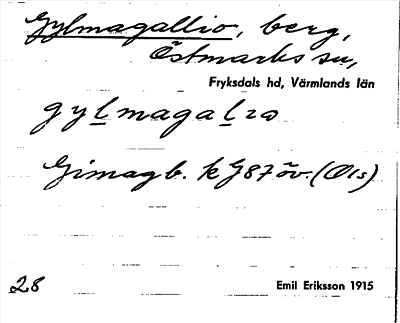 Gylmagallio, berg,
Östmarks sn,
Fryksdals hd, Värmlands län
gylmagalio
Gimagb. k G87 öv. (Ois)
28
Emil Eriksson 1915